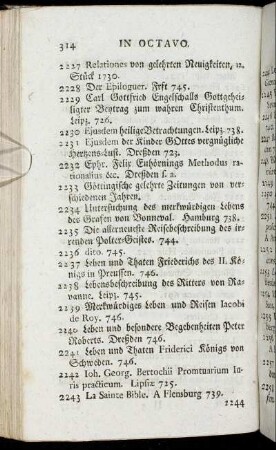 314 IN OCTAVO.
2227 Relationes von gelehrten Neuigkeiten, 12.
Stück 1730.
2228 Der Epiloguer. Frft 745.
2229 Carl Gottfried Engelschalls Gottgehei-
ligter Beytrag zum wahren Christenthum.
Leipz. 726.
2230 Ejusdem heilige Betrachtungen. Leipz. 738.
2231 Ejusdem der Kinder GOttes vergnügliche
Hertzens-Lust. Dreßden 723.
2232 Ephr. Felix Euthörnings Methodus ra-
tionalius &c. Dreßden s. a.
2233 Göttingische gelehrte Zeitungen von ver-
schiedenen Jahren.
2234 Untersuchung des merkwürdigen Lebens
des Grafen von Bonneval. Hamburg 738.
2235 Die allerneueste Reisebeschreibung des ir-
renden Polter-Geistes. 744.
2236 dito. 745.
2237 Leben und Thaten Friederichs des II. Kö-
nigs in Preussen. 746.
2238 Lebensbeschreibung des Ritters von Ra-
vanne. Leipz. 745.
2239 Merkwürdiges Leben und Reisen Iacobi
de Roy. 746.
2240 Leben und besondere Begebenheiten Peter
Roberts. Dreßden 746.
2241 Leben und Thaten Friderici Königs von
Schweden. 746.
2242 Ioh. Georg. Bertochii Promtuarium Iu-
ris practicum. Lipsiæ 725.
2243 La Sainte Bible. A Flensburg 739.
2244